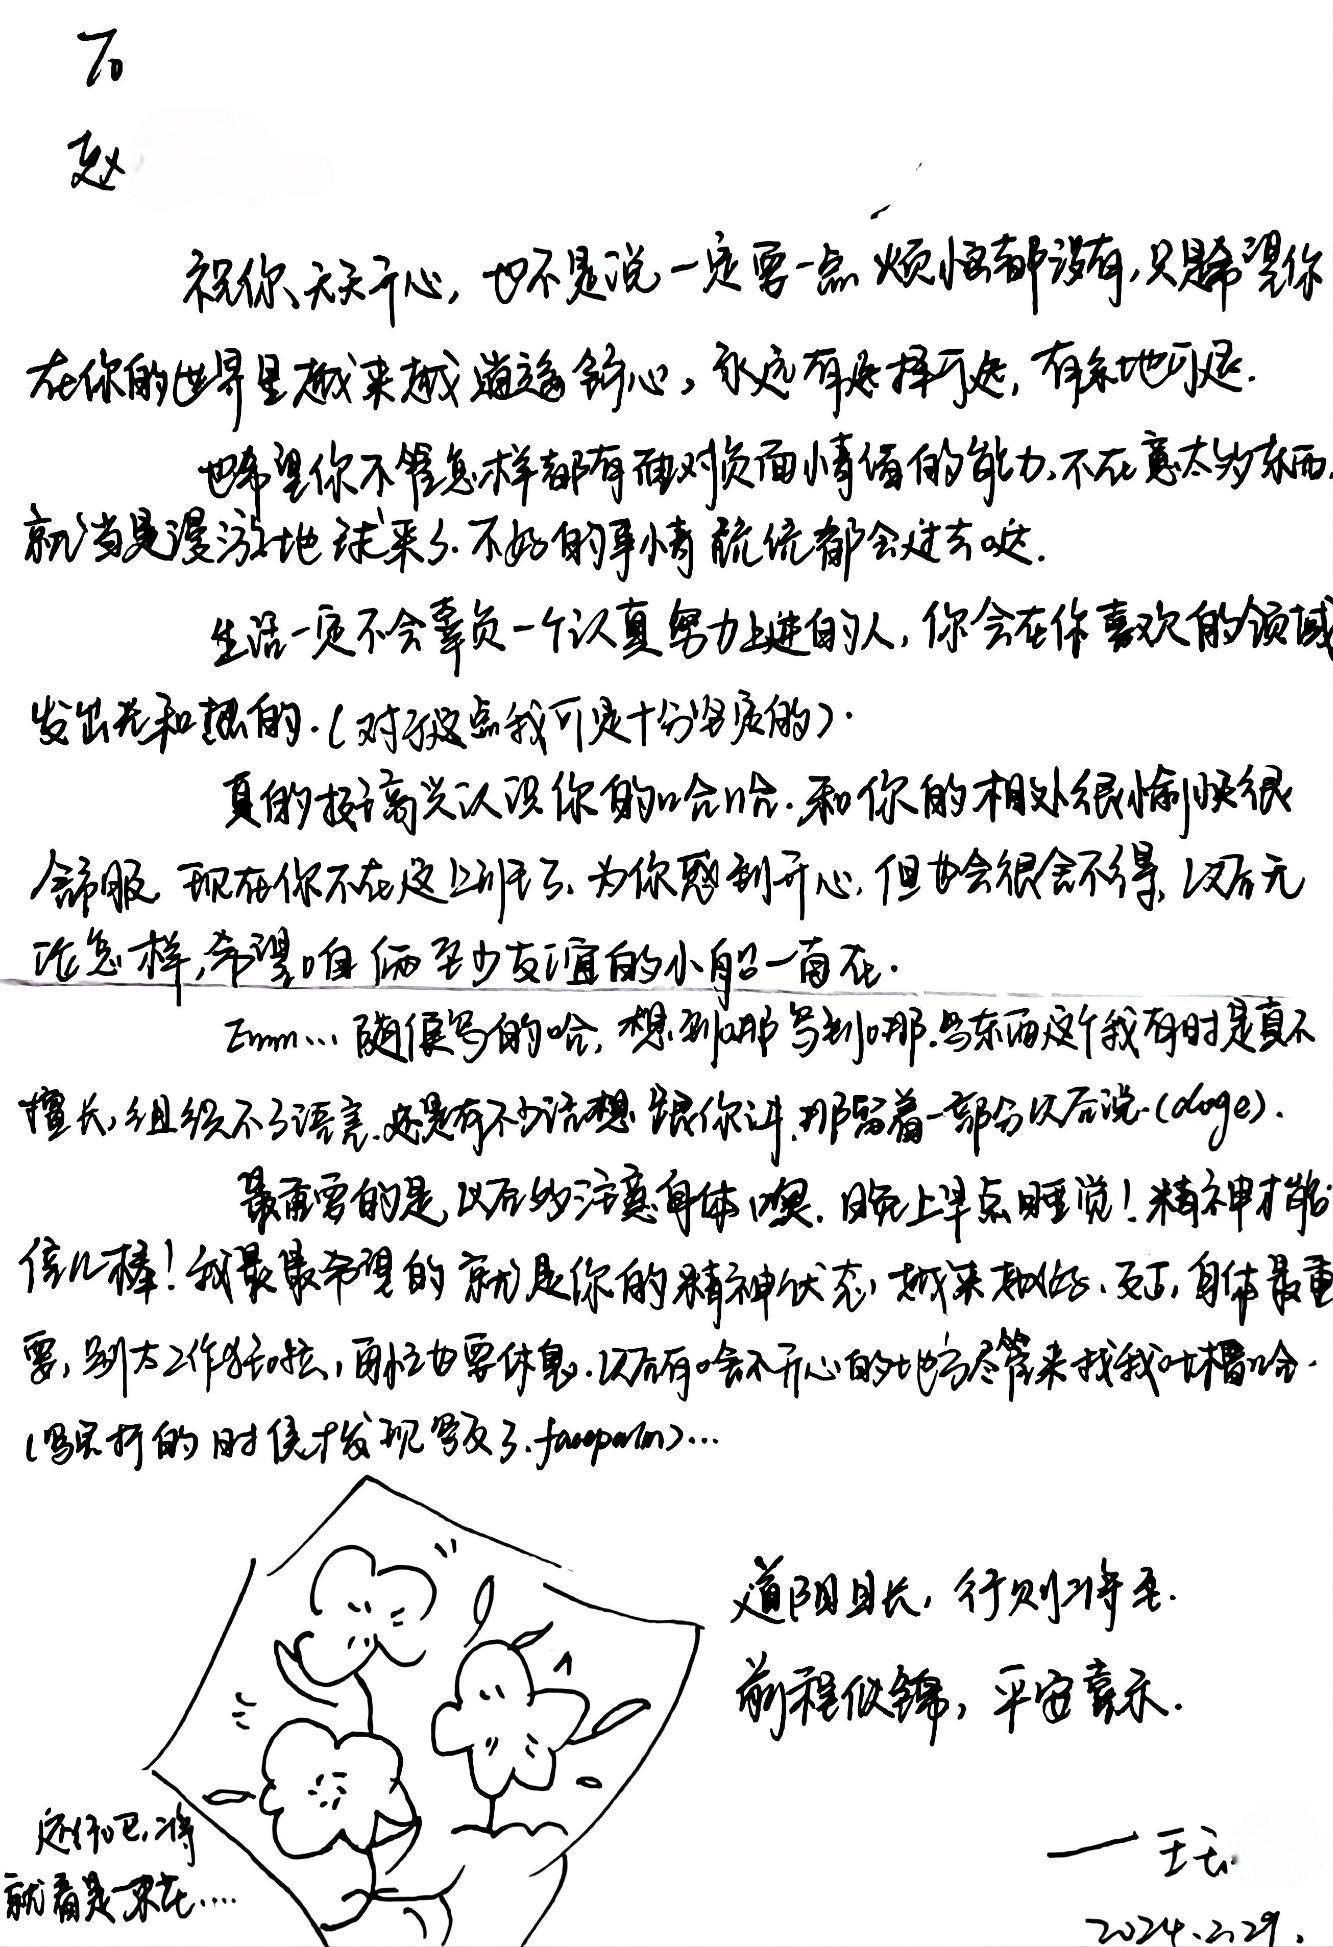 To
赵
祝你、天天开心，也不是说一定要一点烦恼都没有，只是希望你
在你的世界里越来越逍遥舒心，永远有选择可选，有余地可退.
也希望你不管怎样都有面对负面情绪的能力、不在意太多东西,
就当是漫游地球来了.不好的事情统统都会过去哒.
生活一定不会辜负一个认真努力上进的人，你会在你喜欢的领域
发出光和热的.(对于这点我可是十分坚定的).
真的挺高兴认识你的哈哈.和你的相处很愉快很
舒服 现在你不在这上班了、为你感到开心，但也会很舍不得，以后无
论怎样,希望咱俩至少友谊的小船一直在.
Emm...随便写的哈，想到哪写到哪.写东西这个我有时是真不
擅长,组织不了语言.还是有不少话想跟你讲,那留着一部分以后说.(doge).
最重要的是 以后妙注意身体噢.晚上早点睡觉！精神才能
倍儿棒！我最最希望的就是你的精神状态,越来越好、反正，身体最重
要，别太工作狂啦，再忙也要休息.以后有啥不开心的地方尽管来找我吐槽哈.
(写完折的时候才发现写反了.facepalm)...
道阻且长，行则将至.
前程似锦，平安喜乐.
送你吧,将
就着是一束花....
—王
2024.2.29.